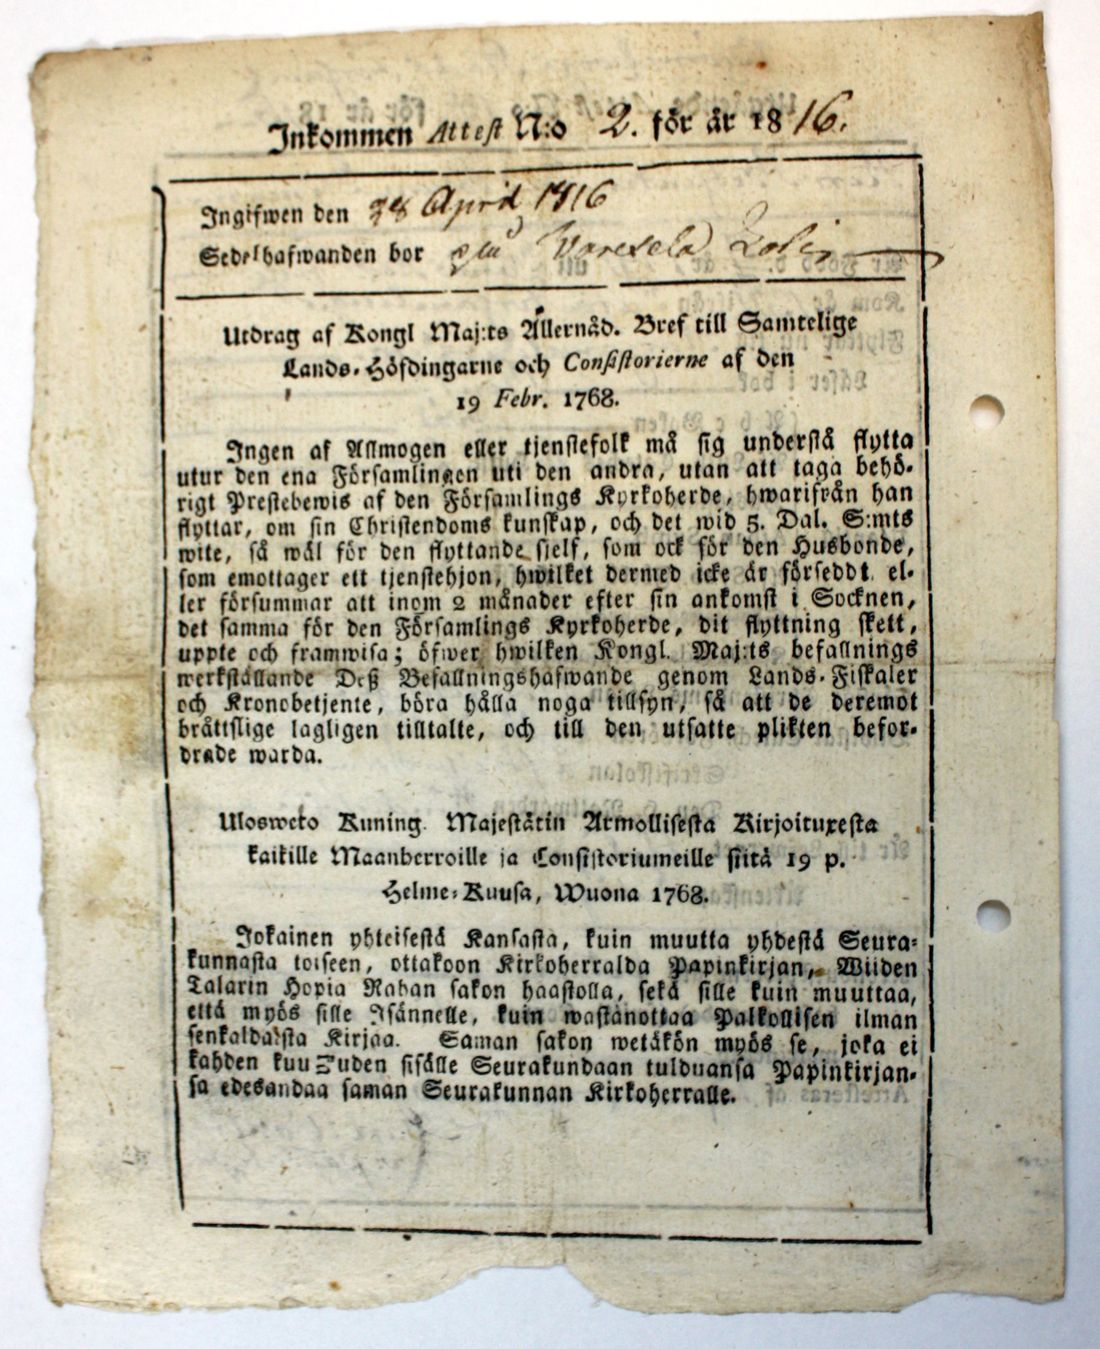 Inkommen Attest N:o 2. för år 1816.
Ingifwen den 28 April 1816
Sedelhafwanden bor
Utdrag af Kongl Maj:ts Allernåd. Bref till Samtelige
Lands-Höfdingarne och Consistorierne af den
19 Febr. 1768.
Ingen af Allmogen eller tjenstefolk må sig understå flytta
utur den ena Församlingen uti den andra, utan att taga behö-
rigt Prestebewis af den Församlings Kyrkoherde, hwarifrån han
flyttar, om sin Christendoms kunskap, och det wid 5. Dal. S:mts
wite, så wäl för den flyttande sjelf, som ock för den Husbonde,
som emottager ett tjenstehjon, hwilket dermed icke är förseddt el-
ler försummar att inom 2 månader efter sin ankomst i Socknen,
det samma för den Församlings Kyrkoherde, dit flyttning skett,
uppte och framwisa; öfwer hwilken Kongl. Maj:ts befallnings
werkställande Deß Befallningshafwande genom Lands-Fiskaler
och Kronobetjente, böra hålla noga tillsyn, så att de deremot
bråttslige lagligen tilltalte, och till den utsatte plikten befor-
drade warda.
Ulosweto Kuning. Majestätin Armollisesta Kirjoituxesta
kaikille Maanherroille ja Consistoriumeille siitä 19 p.
Helme-Kuusa, Wuona 1768.
Jokainen yhteisestä Kansasta, kuin muutta yhdestä Seura-
kunnasta toiseen, ottakoon Kirkoherralda Papinkirjan, Wiiden
Talarin Hopia Rahan sakon haastolla, sekä sille kuin muuttaa,
että myös sille Isännelle, kuin wastanottaa Palkollisen ilman
senkaldaista Kirjaa. Saman sakon wetäkön myös se, joka ei
kahden kuukauden sisälle Seurakundaan tulduansa Papinkirjan-
sa edesandaa saman Seurakunnan Kirkoherralle.